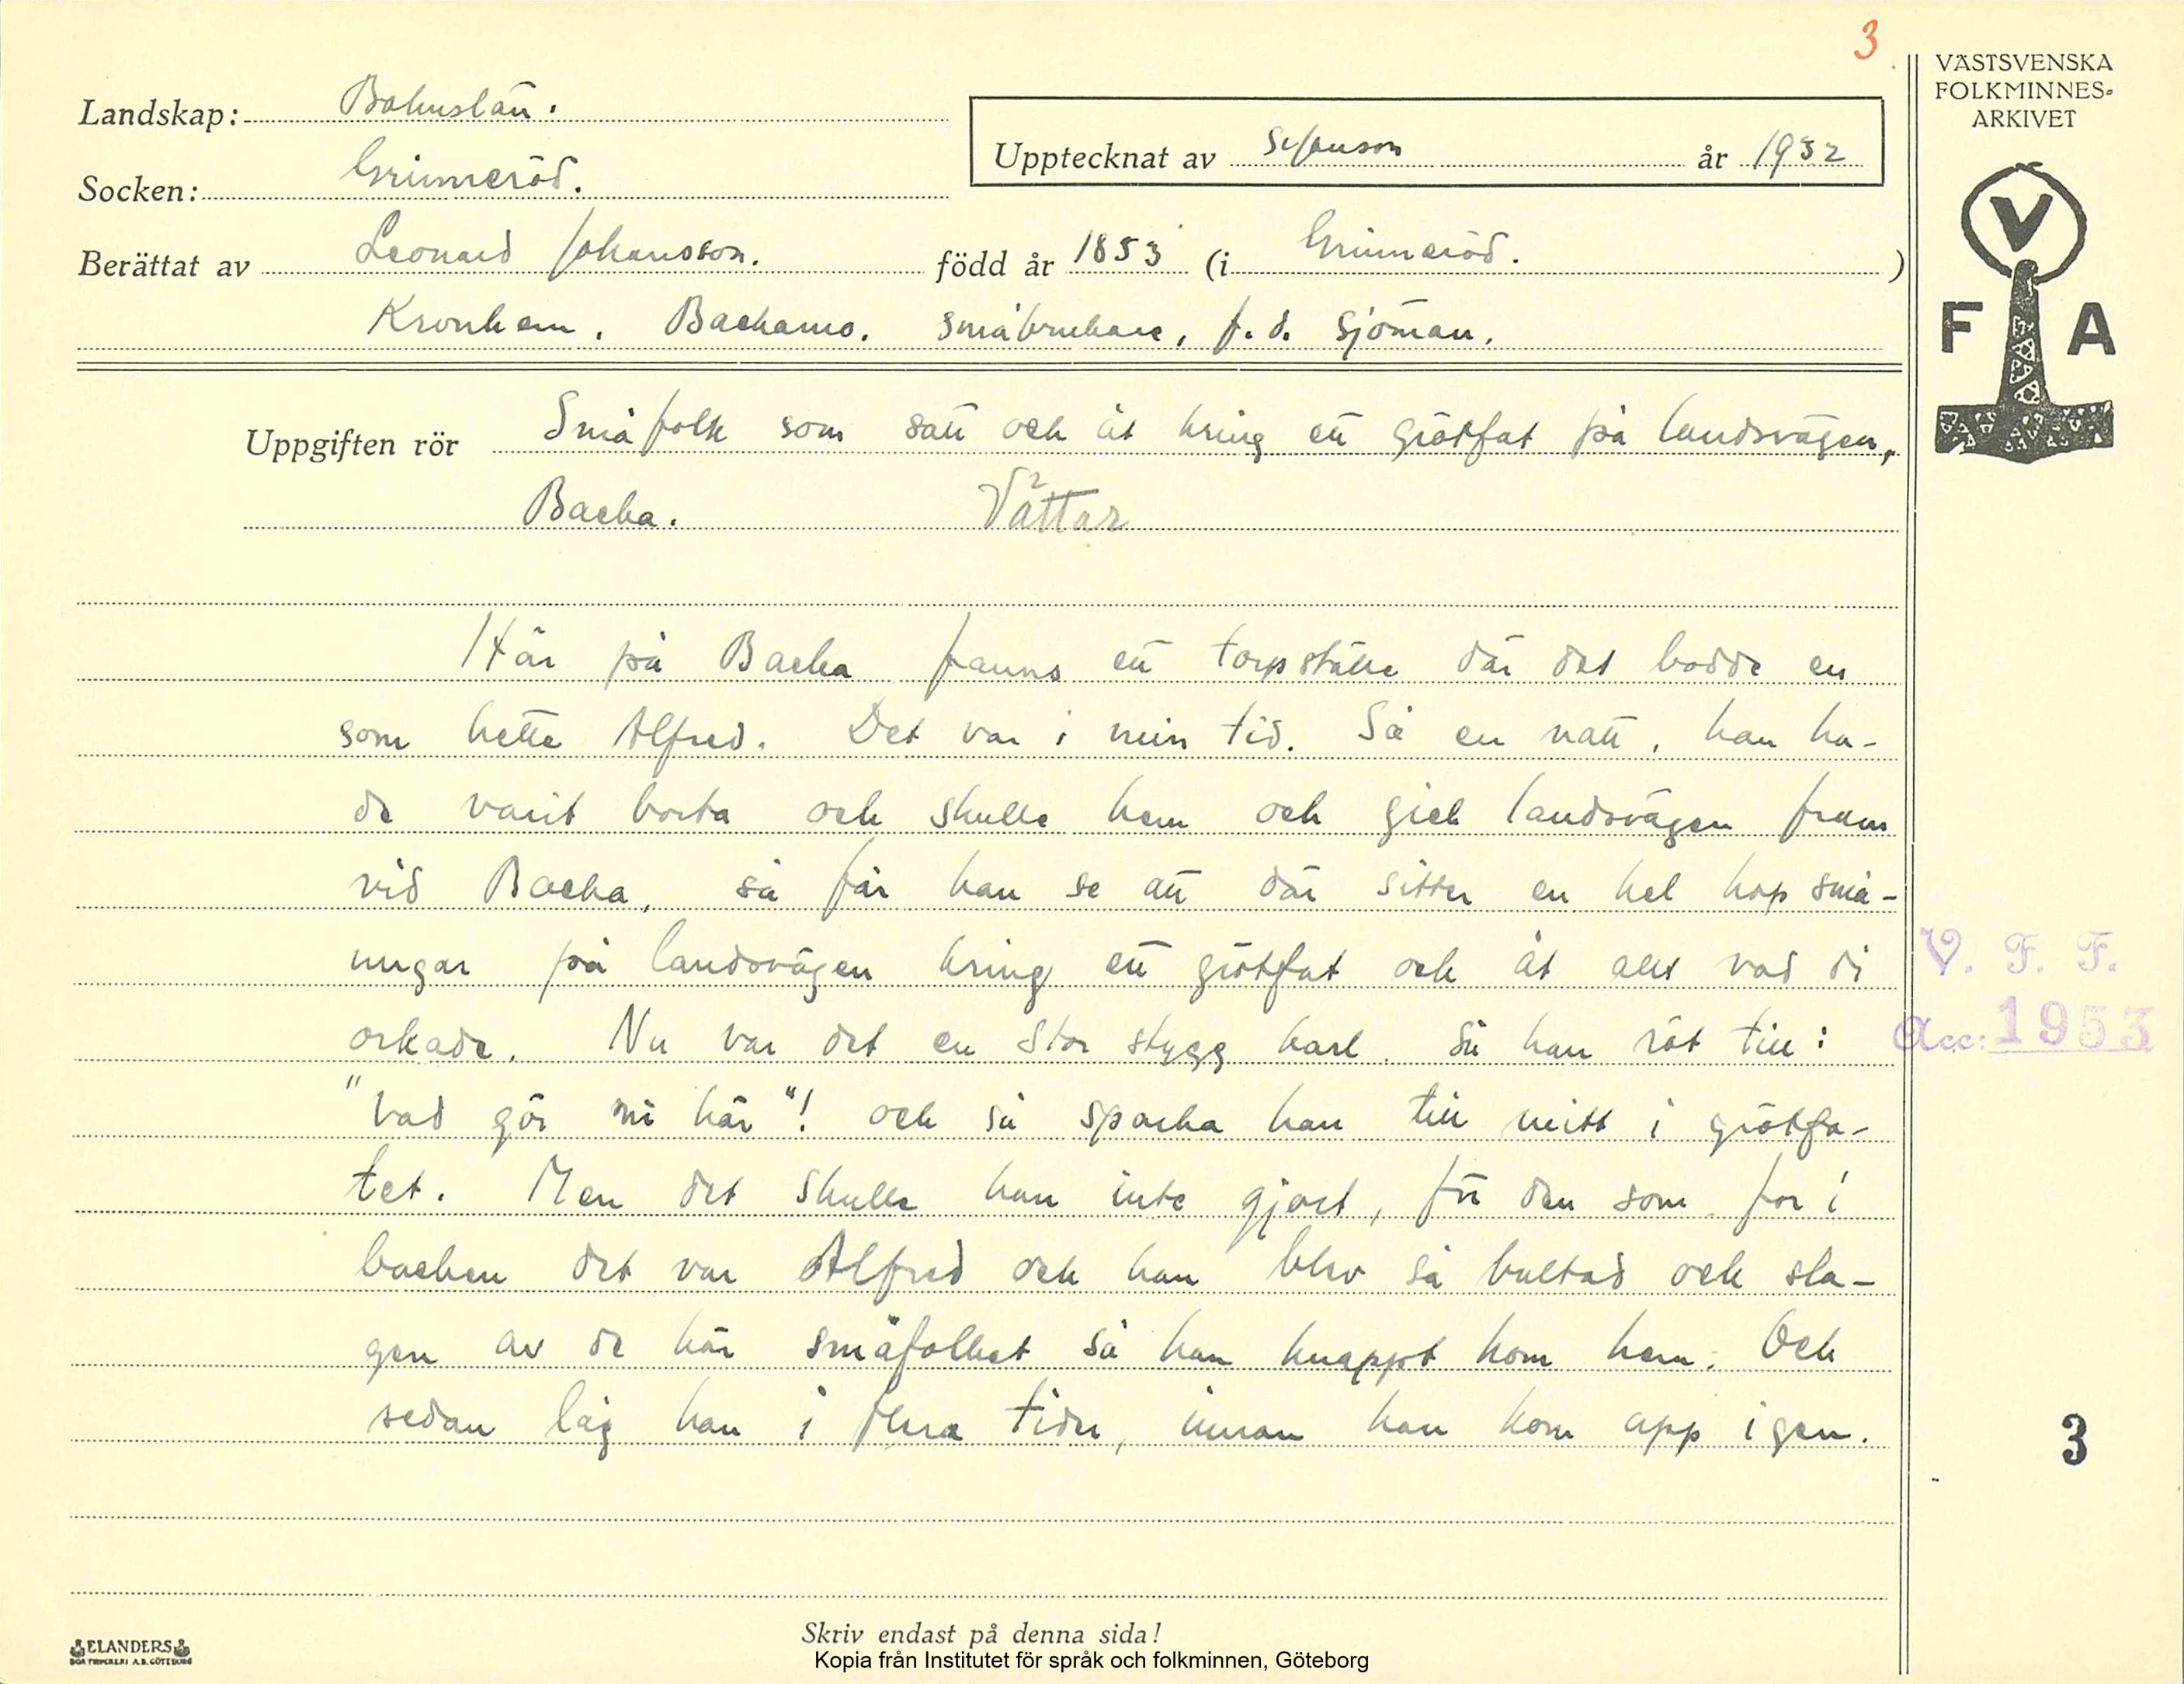 3
VÄSTSVENSKA
FOLKMINNES-
ARKIVET
Landskap: Bohuslän.
Upptecknat av år 1932
Socken: Grinneröd.
Berättat av Leonard Johansson. född år 1853 (i Grinneröd. )
Kronhem. Backamo. Småbrukare, f.d. sjöman.
V
F A
Uppgiften rör Småfolk som satt och åt kring ett grötfat på landsvägen,
Backa. Vättar
Här på Backa fanns ett torpställe där det bodde en
som hette Alfred. Det var i min tid. Så en natt, han ha-
de varit borta och skulle hem och gick landsvägen fram
vid Backa, så får han se att där sitter en hel hop små-
ungar på landsvägen kring ett grötfat och åt allt vad di
orkade. Nu var det en stor stygg karl. Så han röt till:
"Vad gör ni här"! och så sparka han till mitt i grötfa-
tet. Men det skulle han inte gjort, för den som for i
backen det var Alfred och han blev så bultad och sla-
gen av de här småfolket så han knappt kom hem. Och
sedan låg han i flera tider, innan han kom opp igen.
V. F. F.
Acc: 1953
3
ELANDERS
BOKTRYCKERI A.B. GÖTEBORG
Skriv endast på denna sida!
Kopia från Institutet för språk och folkminnen, Göteborg